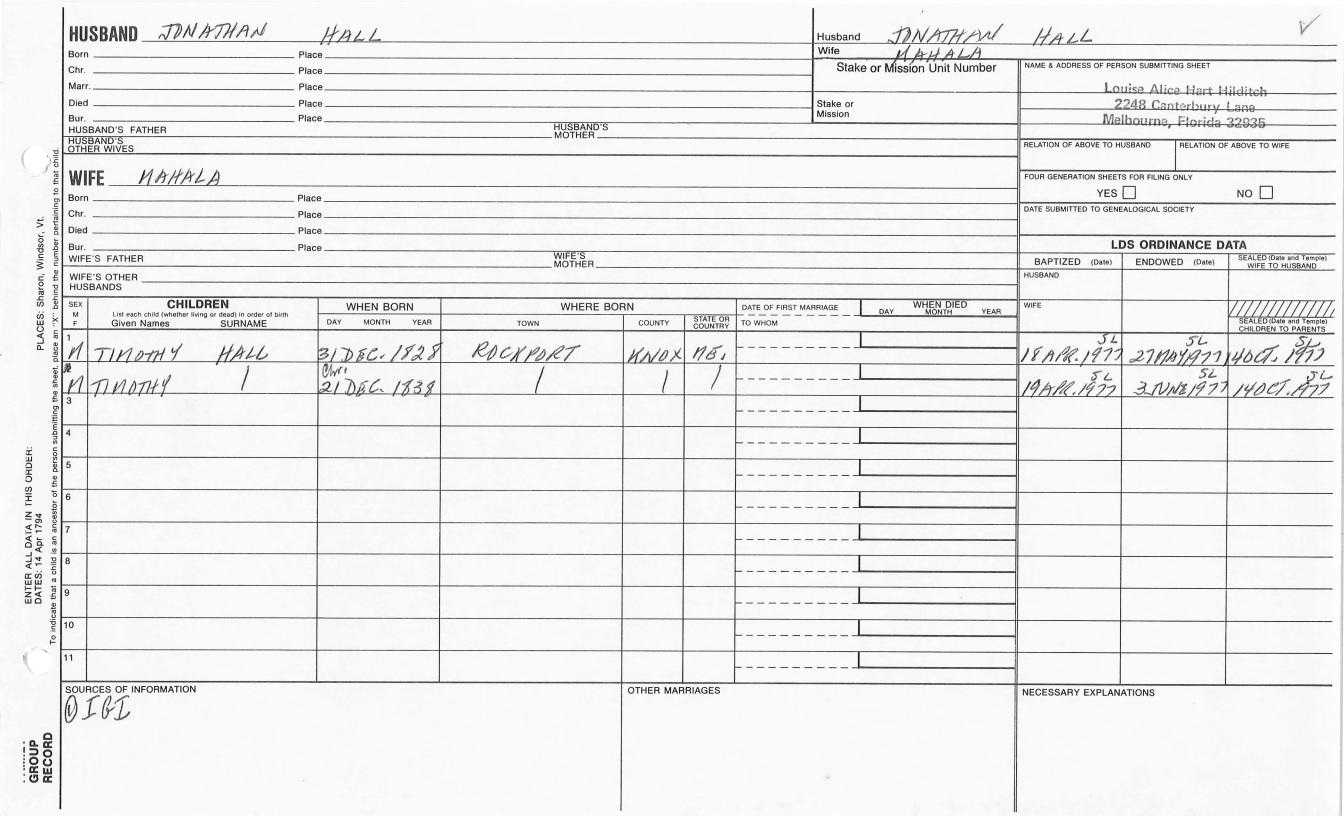 HUSBAND JONATHAN HALL
Born Place
Chr. Place
Marr. Place
Died Place
Bur. Place
HUSBAND'S FATHER HUSBAND'S MOTHER
HUSBAND'S OTHER WIVES
WIFE MAHALA
Born Place
Chr. Place
Died Place
Bur. Place
WIFE'S FATHER WIFE'S MOTHER
WIFE'S OTHER HUSBANDS
Husband JONATHAN HALL
Wife MAHALA
Stake or Mission Unit Number
Stake or Mission
NAME & ADDRESS OF PERSON SUBMITTING SHEET
Louise Alice Hart Hilditch
2248 Canterbury Lane
Melbourne, Florida 32935
RELATION OF ABOVE TO HUSBAND RELATION OF ABOVE TO WIFE
FOUR GENERATION SHEETS FOR FILING ONLY
YES NO
DATE SUBMITTED TO GENEALOGICAL SOCIETY
LDS ORDINANCE DATA
BAPTIZED (Date) ENDOWED (Date) SEALED (Date and Temple) WIFE TO HUSBAND
HUSBAND
WIFE
SEALED (Date and Temple) CHILDREN TO PARENTS
SEX M F
CHILDREN
List each child (whether living or dead) in order of birth
Given Names SURNAME
WHEN BORN
DAY MONTH YEAR
WHERE BORN
TOWN COUNTY STATE OR COUNTRY
DATE OF FIRST MARRIAGE
TO WHOM
WHEN DIED
DAY MONTH YEAR
1 M TIMOTHY HALL 31 DEC. 1828 ROCKPORT KNOX ME. 18 APR. 1977 SL 27 MAY 1977 SL 14 OCT. 1977 SL
M TIMOTHY Chr. 21 DEC. 1838 19 APR. 1977 SL 3 JUNE 1977 SL 14 OCT. 1977 SL
3
4
5
6
7
8
9
10
11
SOURCES OF INFORMATION
① IGI
OTHER MARRIAGES
NECESSARY EXPLANATIONS
ENTER ALL DATA IN THIS ORDER:
DATES: 14 Apr 1794 PLACES: Sharon, Windsor, Vt.
To indicate that a child is an ancestor of the person submitting the sheet, place an "X" behind the number pertaining to that child.
GROUP
RECORD